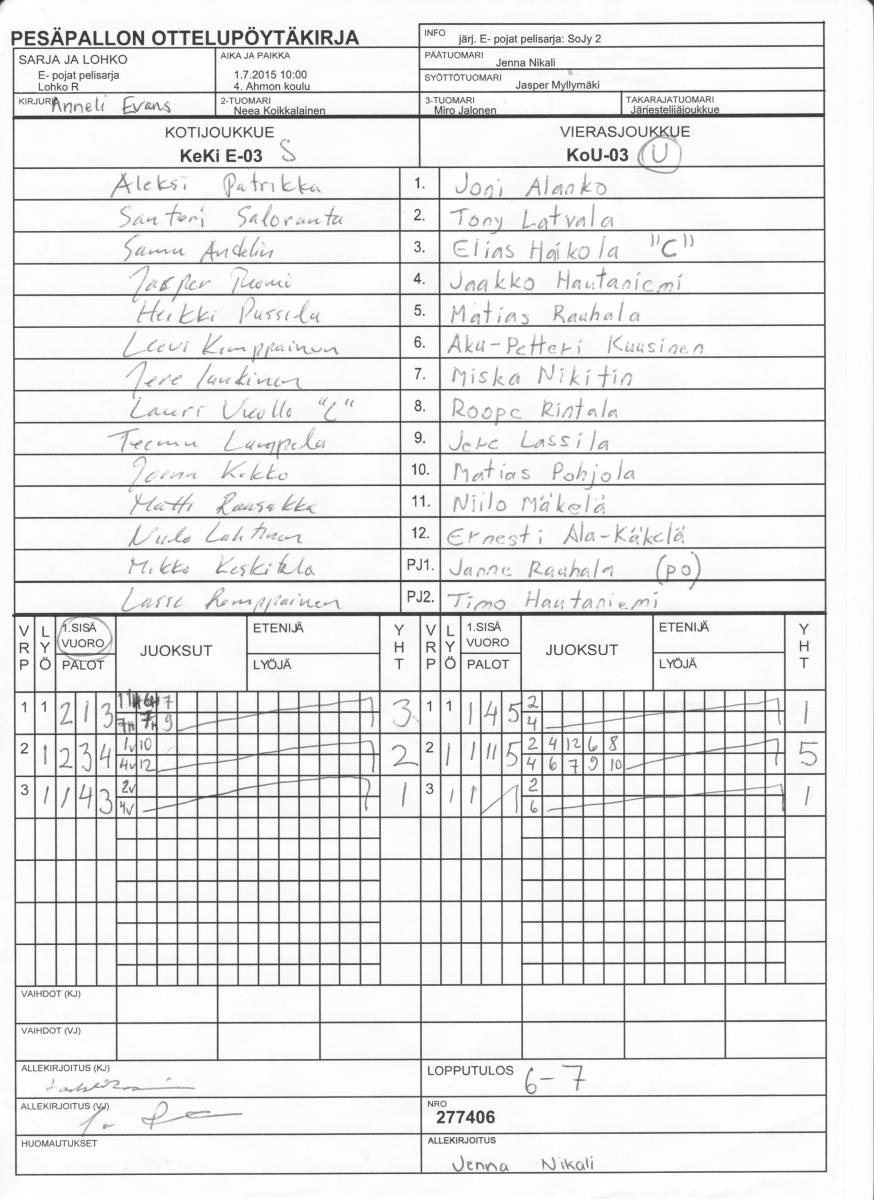 PESÄPALLON OTTELUPÖYTÄKIRJA
INFO järj. E- pojat pelisarja: SoJy 2
SARJA JA LOHKO
E- pojat pelisarja
Lohko R
AIKA JA PAIKKA
1.7.2015 10:00
4. Ahmon koulu
PÄÄTUOMARI
Jenna Nikali
SYÖTTÖTUOMARI
Jasper Myllymäki
KIRJURI Anneli Evans
2-TUOMARI
Neea Koikkalainen
3-TUOMARI
Miro Jalonen
TAKARAJATUOMARI
Järjestelijäjoukkue
KOTIJOUKKUE
KeKi E-03 S
VIERASJOUKKUE
KoU-03 U
Aleksi Patrikka 1. Joni Alanko
Santeri Saloranta 2. Tony Latvala
Samu Andelin 3. Elias Haikola "C"
Jasper Tuomi 4. Jaakko Hautaniemi
Heikki Pussila 5. Matias Rauhala
Leevi Kemppainen 6. Aku-Petteri Kuusinen
Jere 7. Miska Nikitin
Lauri "C" 8. Roope Rintala
Teemu Lampela 9. Jere Lassila
Joona Kokko 10. Matias Pohjola
Matti 11. Niilo Mäkelä
Lahtinen 12. Ernesti Ala-Käkelä
Mikko Keskitalo PJ1. Janne Rauhala (PO)
Lasse Romppainen PJ2. Timo Hautaniemi
VRP LYÖ 1.SISÄ VUORO PALOT JUOKSUT ETENIJÄ LYÖJÄ YHT VRP LYÖ 1.SISÄ VUORO PALOT JUOKSUT ETENIJÄ LYÖJÄ YHT
1 1 2 1 3 7 3 1 1 1 4 5 2 1
7H 7H 9 4
2 1 2 3 4 1v 10 2 2 1 1 11 5 2 4 12 6 8 5
4v 12 4 6 7 9 10
3 1 1 4 3 2v 1 3 1 1 2 1
4v 6
VAIHDOT (KJ)
VAIHDOT (VJ)
ALLEKIRJOITUS (KJ)
LOPPUTULOS 6-7
ALLEKIRJOITUS (VJ)
NRO
277406
HUOMAUTUKSET
ALLEKIRJOITUS
Jenna Nikali